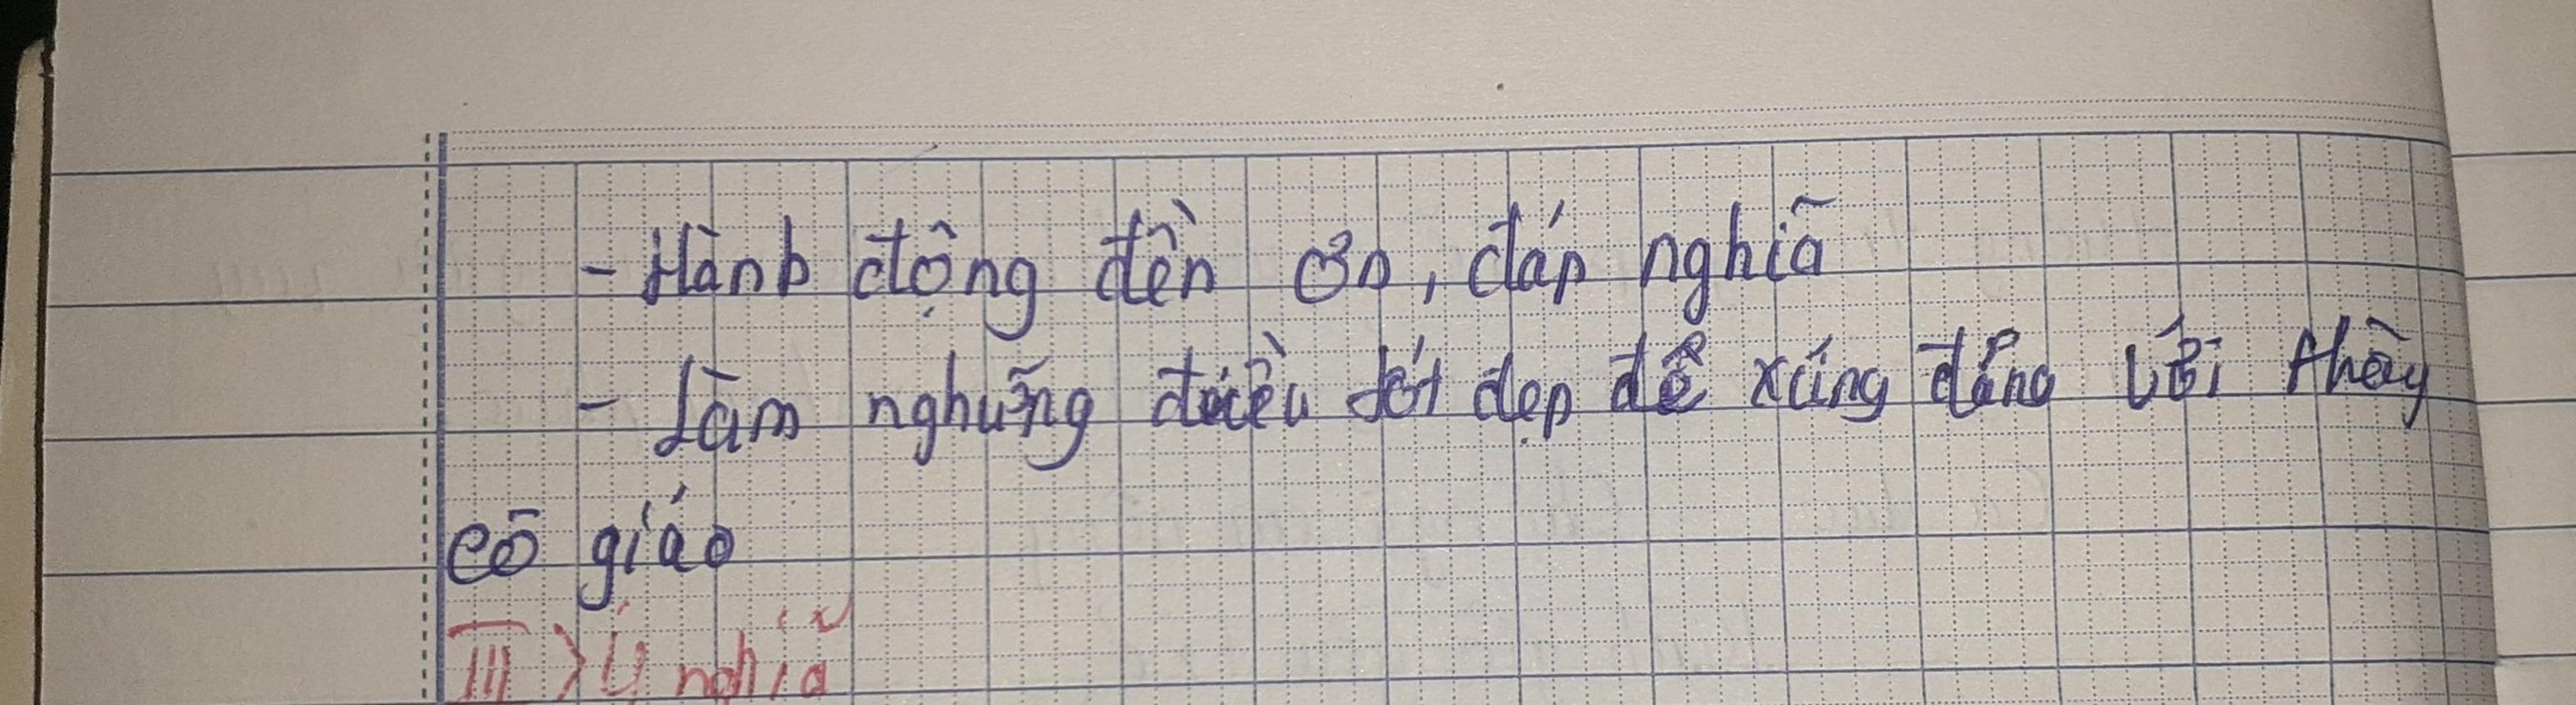 - Hành động đền ơn, đáp nghiã
- Làm nghững điều tốt đẹp để xứng đáng với thầy
cô giáo
III > Ý nghiã